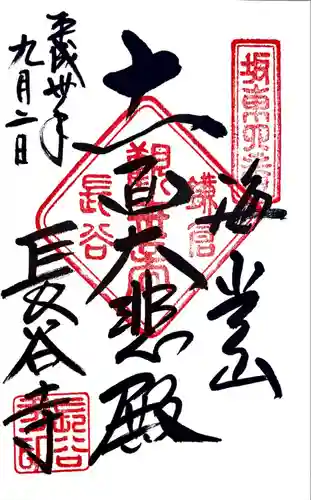 坂東四番
海光山
十一面大悲殿
鎌倉
觀世音
長谷
平成丗年
九月二日
長谷寺
長谷
寺印